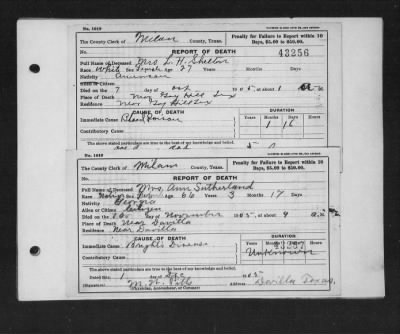 No. 1010
The County Clerk of Milam County, Texas.
Penalty for Failure to Report within 10 Days, $5.00 to $50.00.
REPORT OF DEATH
43256
Full Name of Deceased Mrs L. H. Shelton
Race White Female Age 27 Years Months Days
Nativity American
Died on the 7 day of Oct 190 5 at about 1 M.
Place of Death Near Gay Hill Tex
Residence Near Gay Hill Tex
CAUSE OF DEATH DURATION
Years Months Days
Immediate Cause 1 16
Contributory Cause
No. 1010
The County Clerk of Milam County, Texas.
Penalty for Failure to Report within 10 Days, $5.00 to $50.00.
REPORT OF DEATH
Full Name of Deceased Mrs. Ann Sutherland
Age 66 Years 3 Months 17 Days
Nativity Georgia
Alien or Citizen Citizen
Died on the day of November 190 5 at about 9 M.
Place of Death Near Davilla
Residence Near Davilla
CAUSE OF DEATH DURATION
Immediate Cause Bright's Disease Unknown
Contributory Cause
The above stated particulars are true to the best of my knowledge and belief.
Dated this 1 day of Dec 190 5
(Signature) Davilla Texas.
(Physician, Accoucheur, or Coroner)